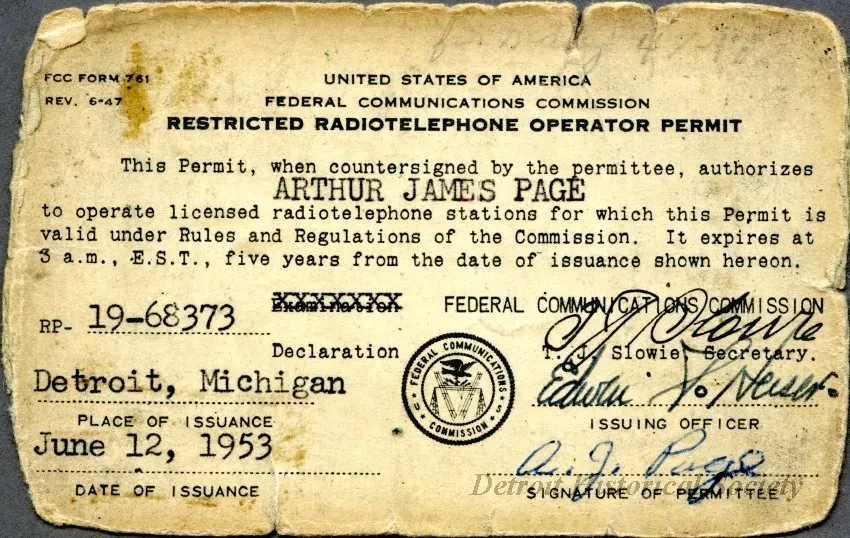 FCC FORM 761
REV. 6-47
UNITED STATES OF AMERICA
FEDERAL COMMUNICATIONS COMMISSION
RESTRICTED RADIOTELEPHONE OPERATOR PERMIT
This Permit, when countersigned by the permittee, authorizes
ARTHUR JAMES PAGE
to operate licensed radiotelephone stations for which this Permit is
valid under Rules and Regulations of the Commission. It expires at
3 a.m., E.S.T., five years from the date of issuance shown hereon.
RP- 19-68373
Examination
Declaration
FEDERAL COMMUNICATIONS COMMISSION
T. J. Slowie
T. J. Slowie, Secretary.
Detroit, Michigan
PLACE OF ISSUANCE
FEDERAL COMMUNICATIONS
COMMISSION
U S
Edwin
ISSUING OFFICER
June 12, 1953
DATE OF ISSUANCE
A. J. Page
SIGNATURE OF PERMITTEE
Detroit Historical Society